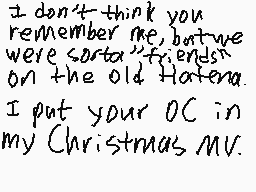 I don't think you
remember me, but we
were sorta "friends"
on the old Hatena.
I put your OC in
my Christmas MV.